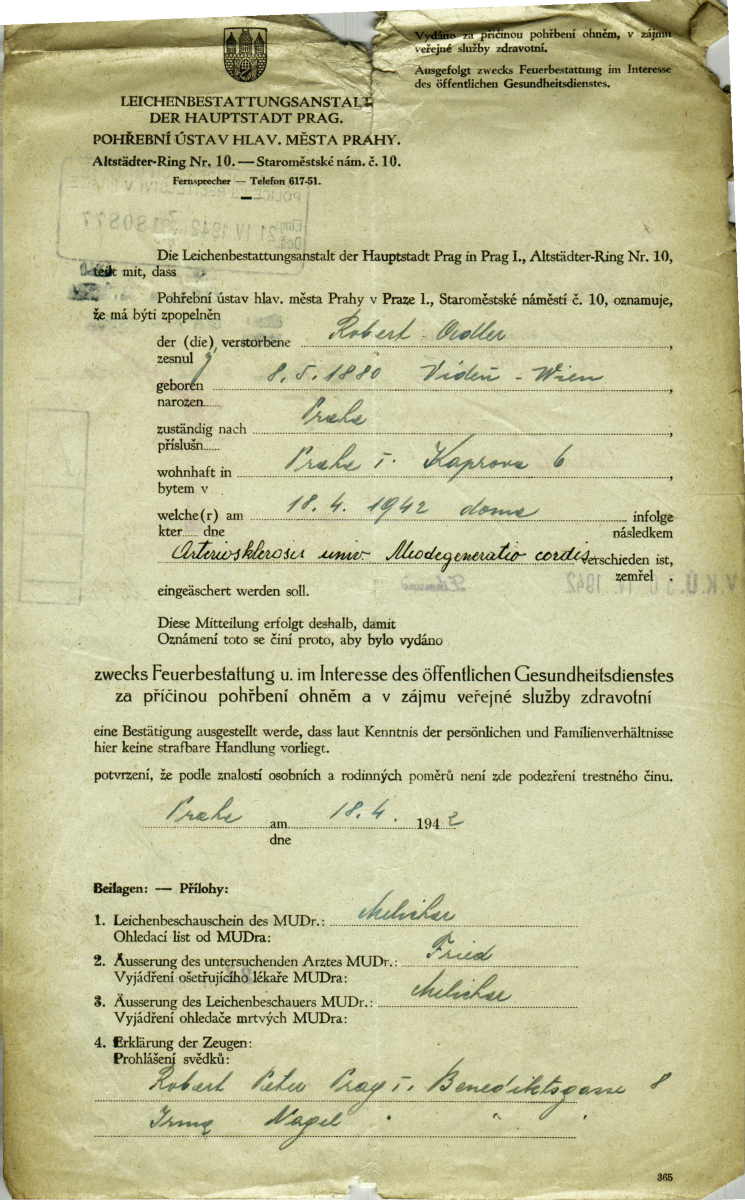 Vydáno za příčinou pohřbení ohněm, v zájmu
veřejné služby zdravotní.
Ausgefolgt zwecks Feuerbestattung im Interesse
des öffentlichen Gesundheitsdienstes.
LEICHENBESTATTUNGSANSTALT
DER HAUPTSTADT PRAG.
POHŘEBNÍ ÚSTAV HLAV. MĚSTA PRAHY.
Altstädter-Ring Nr. 10. — Staroměstské nám. č. 10.
Fernsprecher — Telefon 617-51.
21 IV 1942 180877
Die Leichenbestattungsanstalt der Hauptstadt Prag in Prag I., Altstädter-Ring Nr. 10,
teilt mit, dass
Pohřební ústav hlav. města Prahy v Praze I., Staroměstské náměstí č. 10, oznamuje,
že má býti zpopelněn
der (die) verstorbene Robert Ordler,
zesnulý
geboren 8. 5. 1880 Vídeň - Wien,
narozen
zuständig nach Praha,
příslušn
wohnhaft in Praha I. Kaprova 6,
bytem v
welche(r) am 18. 4. 1942 doma infolge
kter dne následkem
Arteriosklerosis univ Miodegeneratio cordis verschieden ist,
zemřel .
eingeäschert werden soll.
Diese Mitteilung erfolgt deshalb, damit
Oznámení toto se činí proto, aby bylo vydáno
zwecks Feuerbestattung u. im Interesse des öffentlichen Gesundheitsdienstes
za příčinou pohřbení ohněm a v zájmu veřejné služby zdravotní
eine Bestätigung ausgestellt werde, dass laut Kenntnis der persönlichen und Familienverhältnisse
hier keine strafbare Handlung vorliegt.
potvrzení, že podle znalostí osobních a rodinných poměrů není zde podezření trestného činu.
Praha am 18. 4. 1942
dne
Beilagen: — Přílohy:
1. Leichenbeschauschein des MUDr.: Melichar
Ohledací list od MUDra:
2. Äusserung des untersuchenden Arztes MUDr.: Fried
Vyjádření ošetřujícího lékaře MUDra:
3. Äusserung des Leichenbeschauers MUDr.: Melichar
Vyjádření ohledače mrtvých MUDra:
4. Erklärung der Zeugen:
Prohlášení svědků:
Robert Peter Prag I. Benediktsgasse 8
Irma Nagel " " "
365